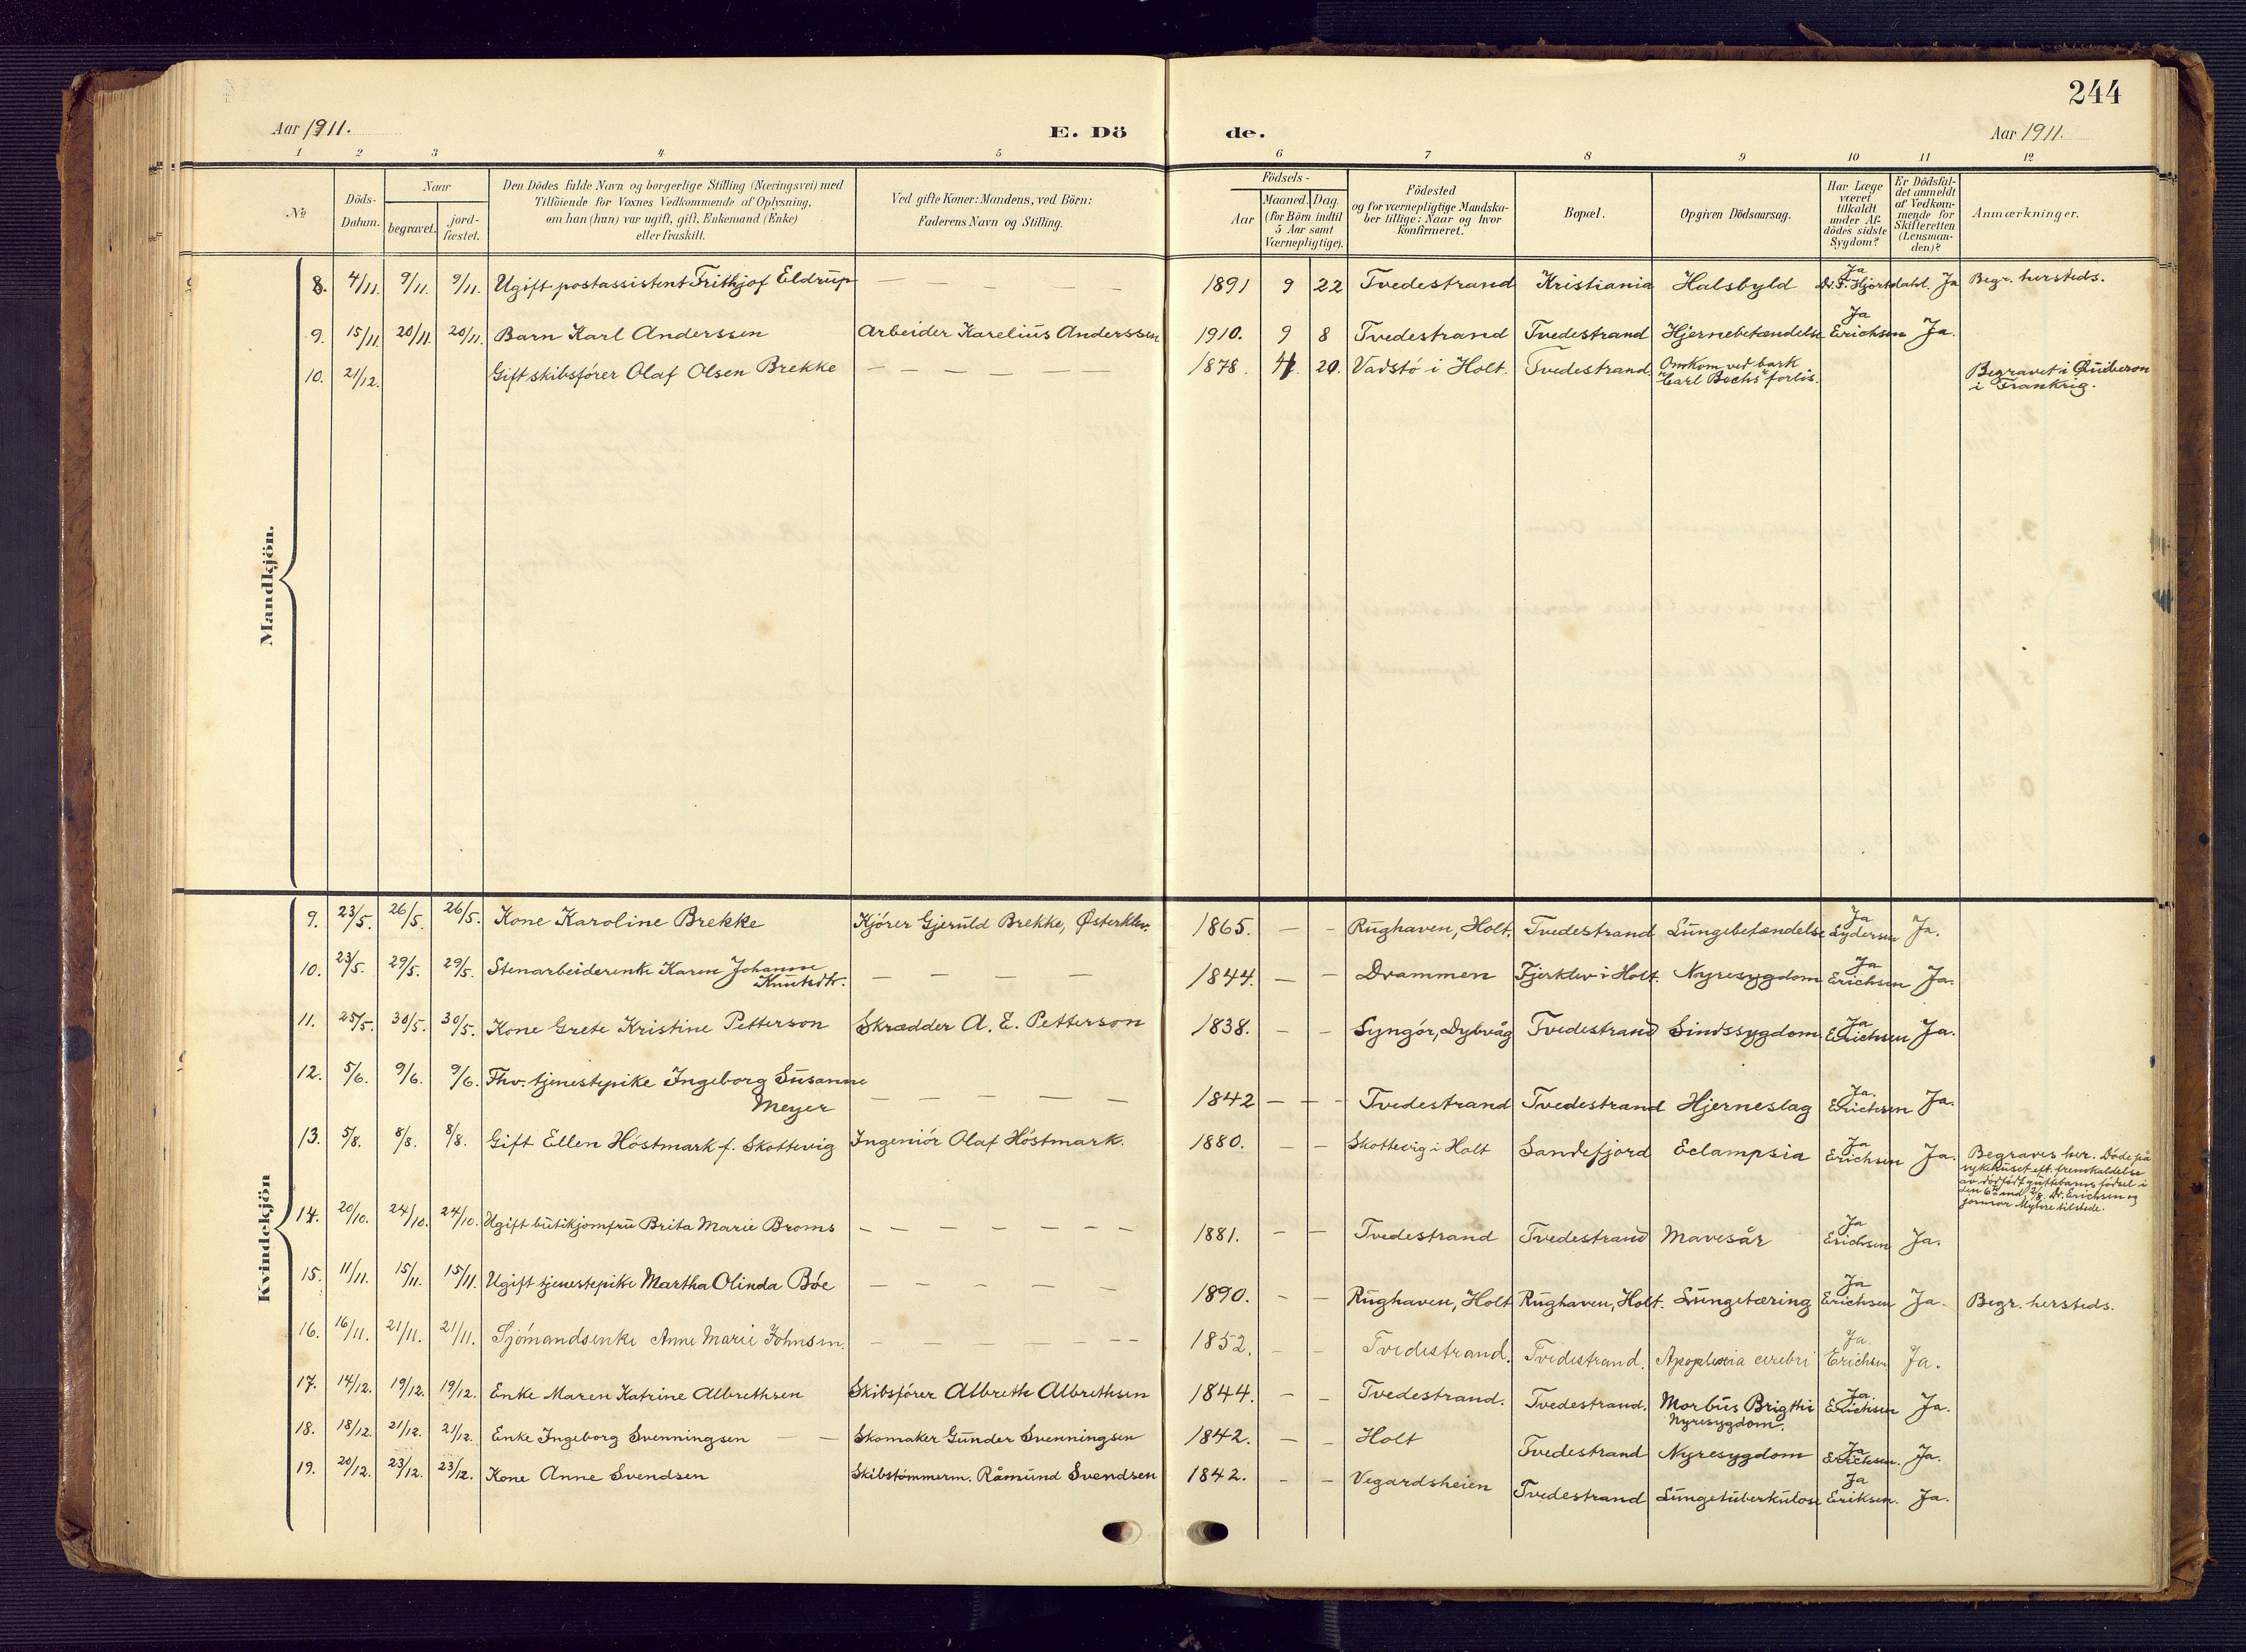 244
Aar 1911.
E. Dö
de.
Aar 1911.
1 2 3 4 5 6 7 8 9 10 11 12
No
Döds-
Datum.
Naar
begravet.
jord-
fæstet.
Den Dödes fulde Navn og borgerlige Stilling (Næringsvei) med
Tilföiende for Voxnes Vedkommende af Oplysning,
om han (hun) var ugift, gift, Enkemand (Enke)
eller fraskilt.
Ved gifte Koner: Mandens, ved Börn:
Faderens Navn og Stilling.
Födsels-
Aar
Maaned. Dag.
(for Börn indtil
5 Aar samt
Værnepligtige).
Födested
og for værnepligtige Mandska-
ber tillige: Naar og hvor
konfirmeret.
Bopæl.
Opgiven Dödsaarsag.
Har Læge
været
tilkaldt
under Af-
dödes sidste
Sygdom?
Er Dödsfal-
det anmeldt
af Vedkom-
mende for
Skifteretten
(Lensman-
den)?
Anmærkninger.
Mandkjön.
8. 4/11. 9/11. 9/11. Ugift postassistent Frithjof Eldrup — — — — — 1891 9 22 Tvedestrand Kristiania Halsbyld Ja Dr. F. Hjortdahl. Ja Begr. hersteds.
9. 15/11. 20/11. 20/11. Barn Karl Anderssen Arbeider Karelius Anderssen 1910. 9 8 Tvedestrand Tvedestrand Hjernebetændelse Ja Erichsen Ja.
10. 21/12. Gift skibsfører Olaf Olsen Brekke — — — — — 1878. 4. 20. Vadstö i Holt. Tvedestrand. Omkom ved bark
"Carl Bechs" forlis.
Begravet i Quiberon
i Frankrig.
Kvindekjön
9. 23/5. 26/5. 26/5. Kone Karoline Brekke Kjører Gjeruld Brekke, Østerklev. 1865. — — Rughaven, Holt. Tvedestrand Lungebetændelse Ja Lydersen Ja.
10. 23/5. 29/5. 29/5. Stenarbeiderenke Karen Johanne
Knutsdtr. — — — — 1844. — — Drammen Fjerklev i Holt. Nyresygdom Ja Erichsen Ja.
11. 25/5. 30/5. 30/5. Kone Grete Kristine Petterson Skrædder A. E. Petterson 1838. — — Lyngör, Dybvåg Tvedestrand Sindssygdom. Ja Erichsen Ja.
12. 5/6. 9/6. 9/6. Fhv. tjenestepike Ingeborg Susanne
Meyer — — — — — 1842 — — — Tvedestrand Tvedestrand Hjerneslag Ja. Erichsen Ja.
13. 5/8. 8/8. 8/8. Gift Ellen Höstmark f. Skottevig Ingeniör Olaf Höstmark. 1880. — — Skottevig i Holt Sandefjord Eclampsia Ja Erichsen Ja. Begraves her. Døde på
sykehuset eft. fremkaldelse
av dødfødt guttebarns fødsel i
den 6te mnd. 2/8. Dr. Erichsen og
jormor Myhre tilstede.
14. 20/10. 24/10. 24/10. Ugift butikjomfru Brita Marie Broms — — — — — — 1881. — — Tvedestrand Tvedestrand Mavesår Ja Erichsen Ja.
15. 11/11. 15/11. 15/11. Ugift tjenestepike Martha Olinda Böe — — — — — 1890. — — Rughaven, Holt Rughaven, Holt. Lungetæring Ja Erichsen Ja. Begr. hersteds.
16. 16/11. 21/11. 21/11. Sjömandsenke Anne Marie Johnsen. — — — — — 1852. — — Tvedestrand. Tvedestrand. Apoplexia cerebri Ja Erichsen Ja.
17. 14/12. 19/12. 19/12. Enke Maren Katrine Albrethsen Skibsförer Albreth Albrethsen 1844. — — Tvedestrand. Tvedestrand. Morbus Brigthi
Nyresygdom. Ja. Erichsen Ja.
18. 18/12. 21/12. 21/12. Enke Ingeborg Svenningsen — — Skomaker Gunder Svenningsen 1842. — — Holt Tvedestrand Nyresygdom Ja Erichsen. Ja.
19. 20/12. 23/12. 23/12. Kone Anne Svendsen Skibstömmerm. Råmund Svendsen 1842. — — Vegardsheien Tvedestrand Lungetuberkulose Ja Eriksen. Ja.